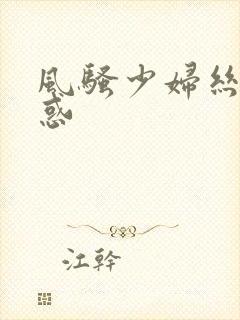 風騷少婦絲
惑
江幹